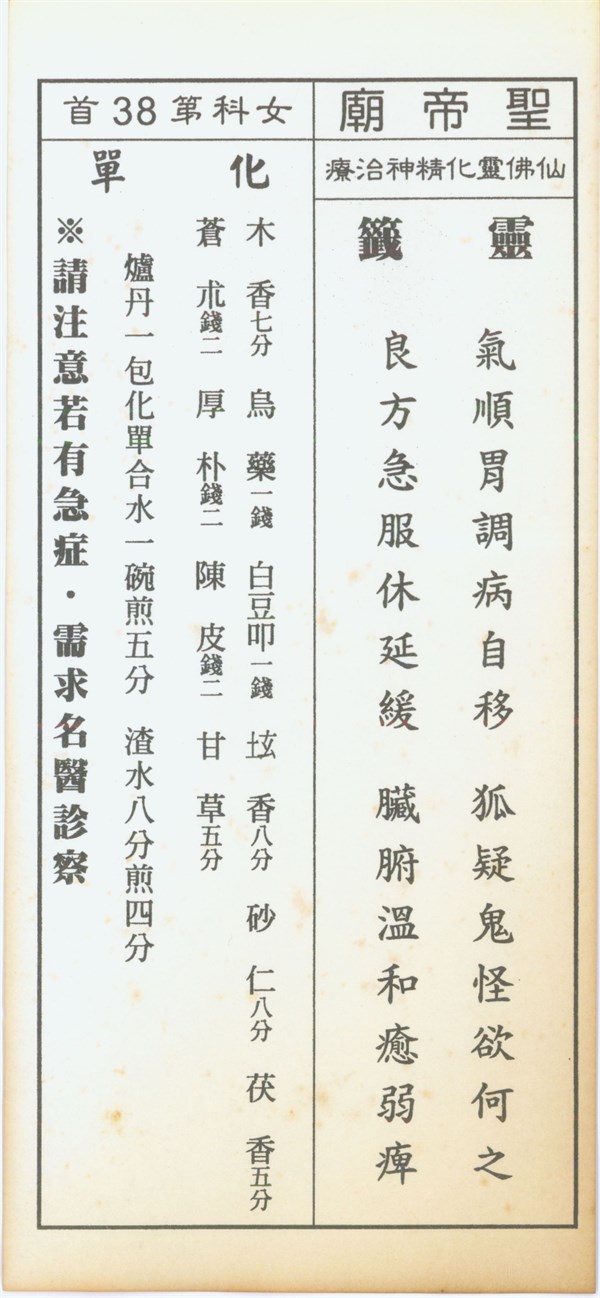 聖帝廟
仙佛靈化精神治療
靈籤
氣順胃調病自移 狐疑鬼怪欲何之
良方急服休延緩 臟腑溫和癒弱痺
女科第38首
化單
木香七分 烏藥一錢 白豆叩一錢 香八分 砂仁八分 茯香五分
蒼朮錢二 厚朴錢二 陳皮錢二 甘草五分
爐丹一包化單合水一碗煎五分 渣水八分煎四分
※請注意若有急症・需求名醫診察